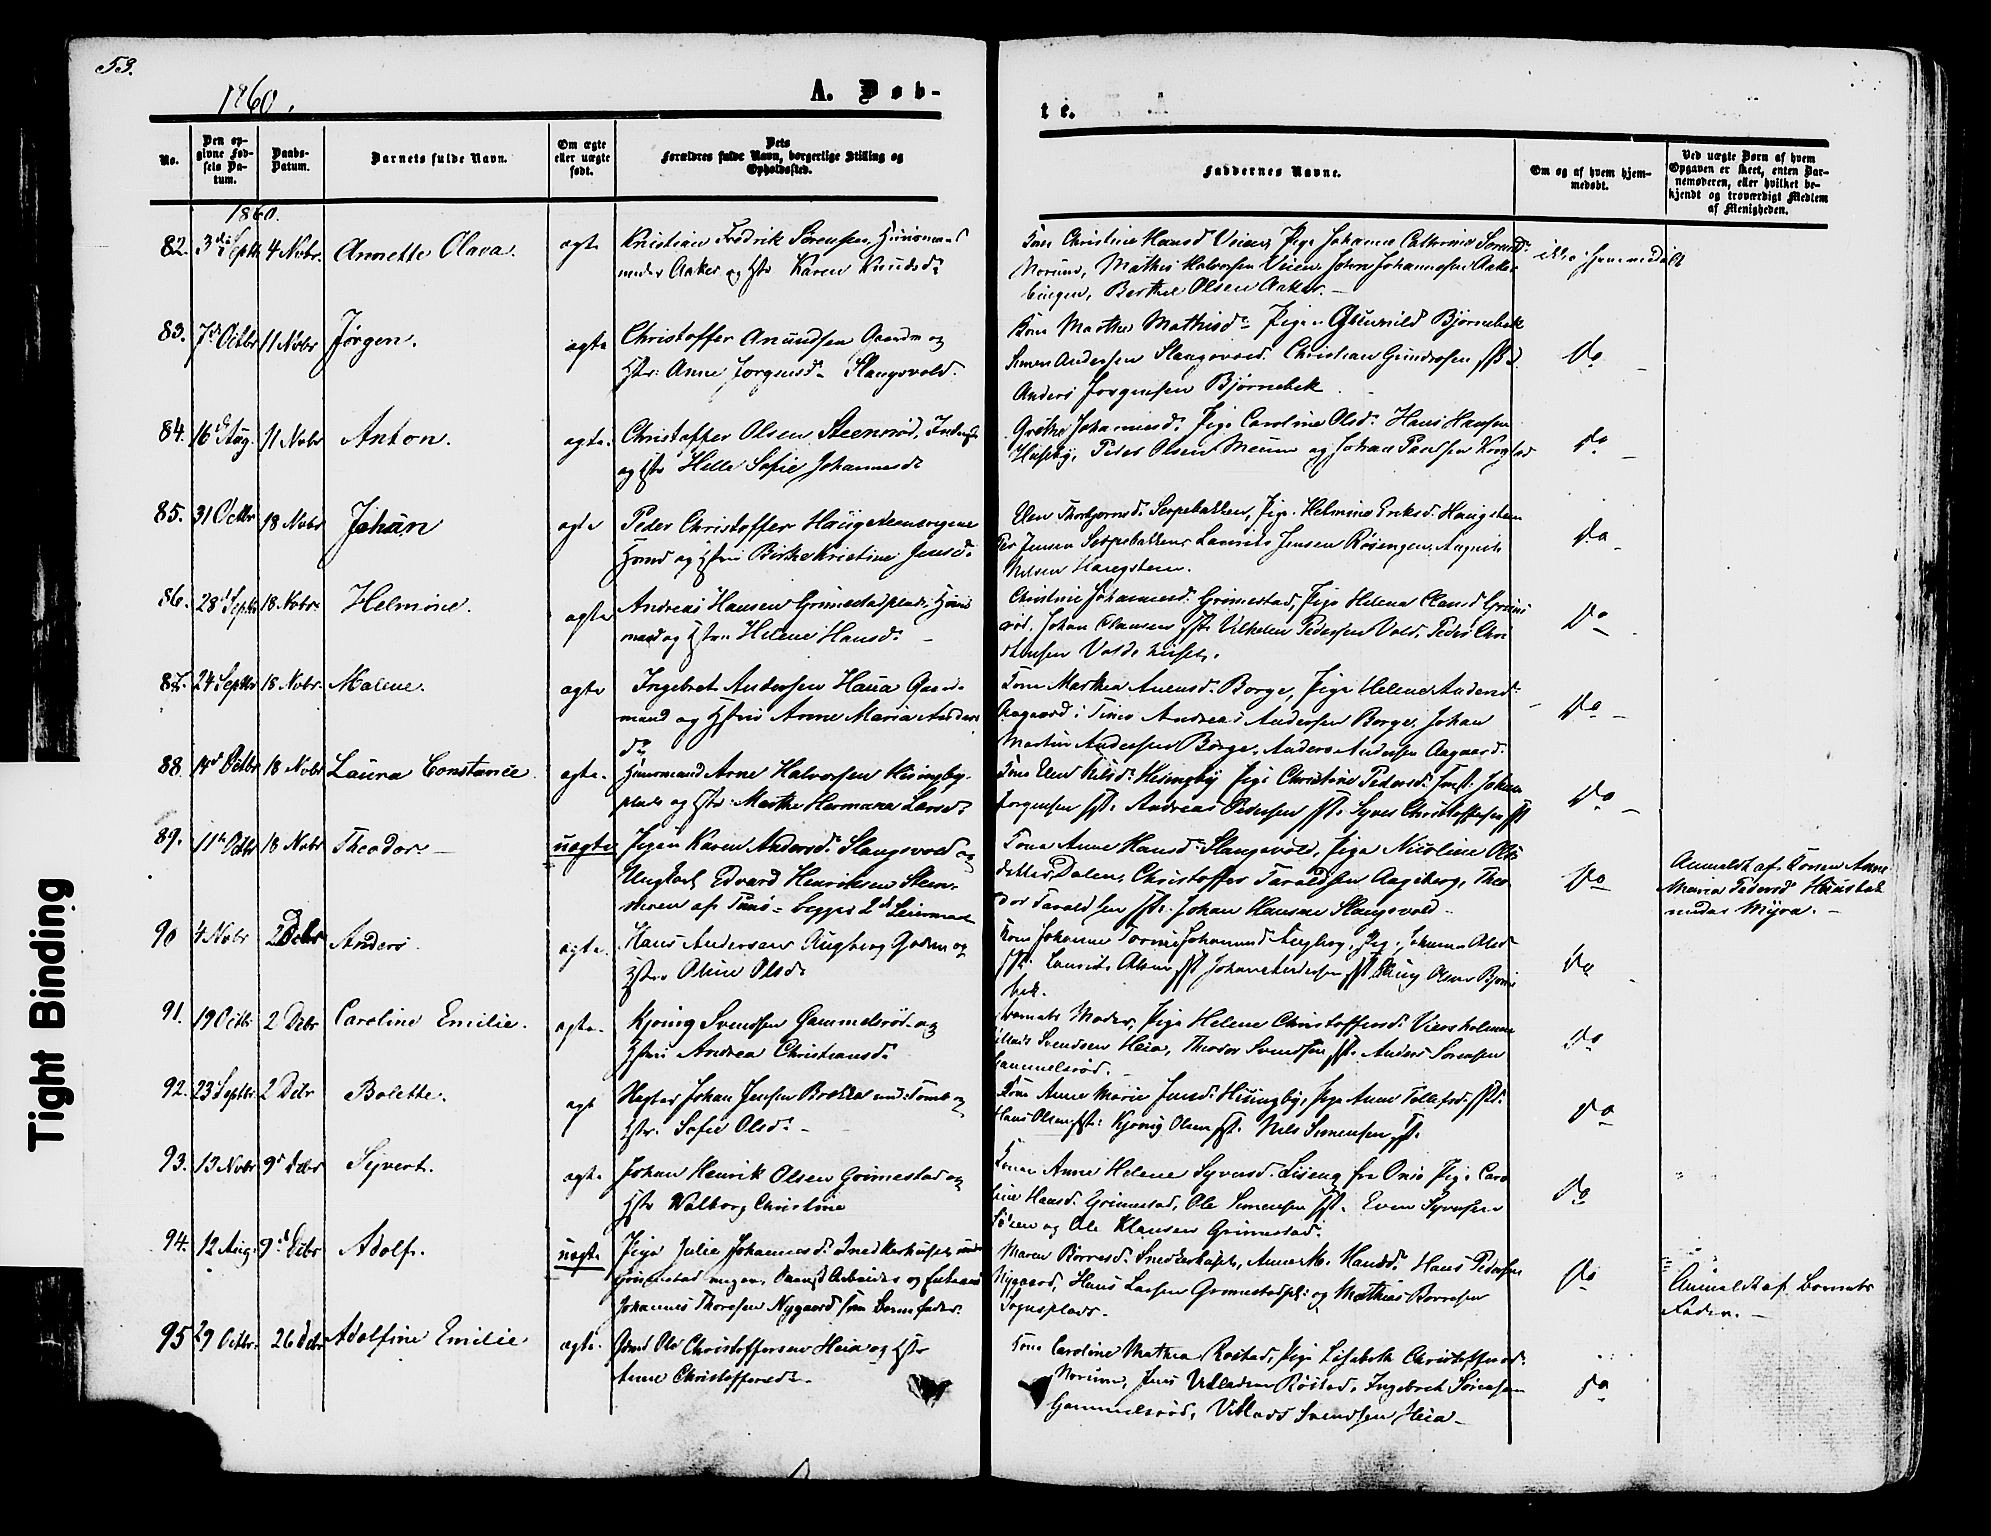 53.
1860.
A. Døb-
te.
No.
Den opgivne Fødsels Datum.
Daabs-Datum.
Barnets fulde Navn.
Om ægte eller uægte født.
Dets Forældres fulde Navn, borgerlige Stilling og Opholdssted.
Faddernes Navne.
Om og af hvem hjemmedøbt.
Ved uægte Børn af hvem Opgaven er skeet, enten Barnemoderen, eller hvilket bekjendt og troværdigt Medlem af Menigheden.
1860.
82. 3die Septbr 4 Nobr. Annette Olava. ægte Kristian Fredrik Sørensen, Huusmand
under Aaker og Hstr Karen Knudsdr
Kone Christine Hansd. Veien, Pige Johanne Cathrine Sørensdr
Norum, Mathis Halvorsen Veien, John Johannesen Aaker
Berthel Olsen Aaker.
ikke hjemmedøbt
83. 7de Octbr 11 Nobr Jørgen. ægte Christoffer Anundsen Gaardm og
Hstr. Anne Jørgensdr Slangsvold.
Kone Marthe Mathisdr Pige Gunnild Bjørnebek
Simen Andersen Slangsvold. Christian Gundersen
Anders Jørgensen Bjørnebek
Do
84. 16de Aug. 11 Nobr Anton. ægte. Christoffer Olsen Steenrød,
og Hstr Helle Sofie Johannesdr
Grethe Johannesd. Pige Caroline Olsdr Hans Hansen
Huseby, Peder Olsen Meum og Johan Paulsen
do
85. 31 Octbr 18 Nobr Johan ægte Peder Christoffer Haugstensengene
Hmd og Hstru Birthe Kristine Jensdr
Elen Thorbjørnsd. Sorpebakken, Pige Helmine Eriksd. Haugsteen
Per Jensen Sorpebakken Laurits Jensen Røsengen, August
Nilsen Haugsteen.
Do
86. 28d Septbr 18 Nobr. Helmine. ægte Andreas Hansen Grimestadplads Huus
mand og Hstru Helene Hansdr
Christine Johannesd. Grimestad, Pige Helene Clausd
Johan Clausen Vilhelm Pedersen Vold, Peder
Do
87. 24 Septbr 18 Nobr. Malene. ægte Ingebret Andersen Haua Gaard-
mand og Hstru Anne Maria Anders
dr
Kone Marthea Arensd. Borge, Pige Helene Andersdr
Aagaard i Tune Andreas Andersen Borge, Johan
Martin Andersen Borge, Anders Andersen Aagaard.
Do
88 14d Octbr 18 Nobr Laura Constance ægte. Huusmand Arne Halvorsen Huusgby-
plads og Hstr. Marthe Hermana Larsdr
Kone Elen Nilsdr Pige Christine Pedersdr Johan
Jørgensen Andreas Pedersen Syver Christoffersen
Do
89. 11te Octbr 18 Nobr Theodor uægte Pigen Karen Andersd. Slangsvold og
Ungkarl Edvard Henriksen Steen-
af Tune begges 2det Leiermaal
Kone Anne Hansd. Slangsvold, Pige Nicoline Ols
datter Dalen, Christoffer Taraldsen Aageberg, Theo-
dor Taraldsen Johan Hansen Slangsvold
Do
Anmeldt af Konen Anne
Maria Pedersd
under Myra.
90 4 Nobr 2 Debr Anders. ægte. Hans Andersen Augberg Gaardm og
Hstru Oline Olsdr
Kone Johanne Johannesd Augberg, Pige Johanne Olsd
Laurits Olsen Johan Andersen Olsen Bjørne
bek.
Do
91. 19 Octbr 2 Debr Caroline Emilie. ægte. Kjøning Svendsen Gammelsrød og
Hstru Andrea Christiansdr
Barnets Moder, Pige Helene Christoffersd.
Villads Svendsen Heia, Theodor Svendsen Anders Sørensen
Gammelsrød.
Do
92. 23 Septbr 2 Debr Bolette. ægt Johan Jensen Brekke und. Tomb og
Hstr. Sofie Olsdr
Kone Anne Marie Jensdr Pige Anne
Hans Olsen Kjønig Olsen Nils Simensen
Do
93. 13 Nobr 9d Debr Syvert. ægte. Johan Henrik Olsen Grimestad og
Hstr Walborg Christine
Konen Anne Helene Syversd. fra Onsø Pige Caro
line Hansd. Grimestad, Ole Simensen Even Syversen
og Ole Klausen Grimestad.
Do
94. 12 Aug. 9d Debr Adolf. uægte Pige Julie Johannesd. Snedkerhuset under
Grimestad og Enkemand
Johannes Thoresen Nygaard som Barnefader.
Maren Borresd. Snedkerhuset, Anne M. Hansdr Hans Pedersen
Nygaard, Hans Larsen Grimestadpl. og Mathias Borresen
Sognsplads.
Do
Anmeldt af Barnets
Fader.
95 29 Octbr. 26 Debr Adolfine Emilie ægte. Gmd Ole Christoffersen Heia og Hstr
Anne Christoffersdr
Kone Caroline Mathea Røstad, Pige Lisabeth Christoffersd.
Norum, Jens Villadsen Røstad, Ingebret Sørensen
Gammelsrød, Villads Svendsen Heia
do
Tight Binding